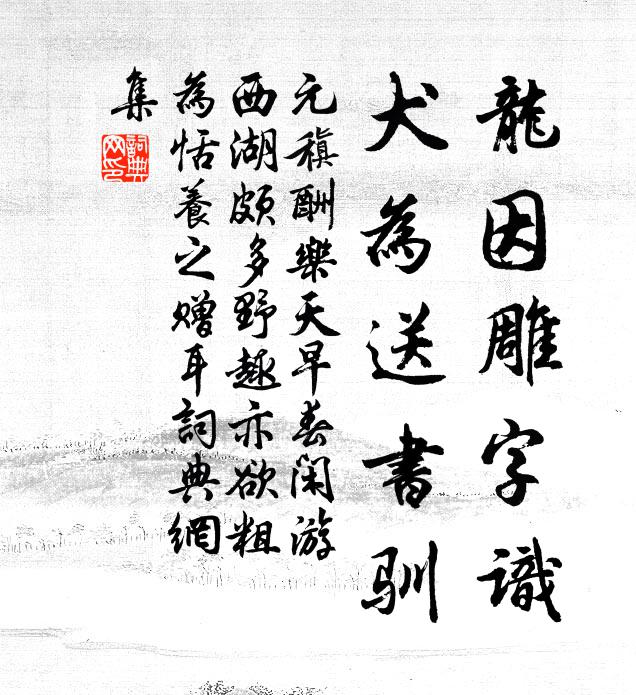 龍因雕字識
犬為送書馴
元稹酬樂天早春閑游
西湖頗多野趣亦欲粗
為恬養之贈耳詞典網
集
詞典
网印